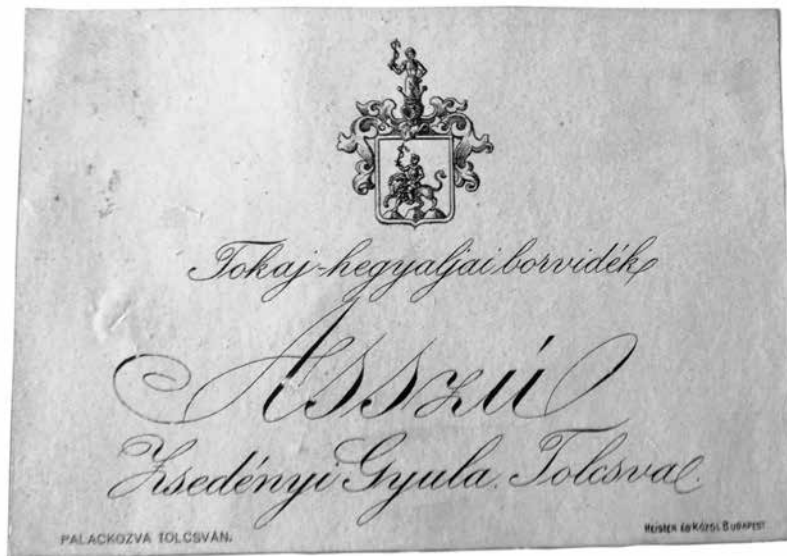 Tokaj-hegyaljai borvidék
Asszú
Zsedényi Gyula. Tolcsva.
PALACKOZVA TOLCSVÁN.
BUDAPEST